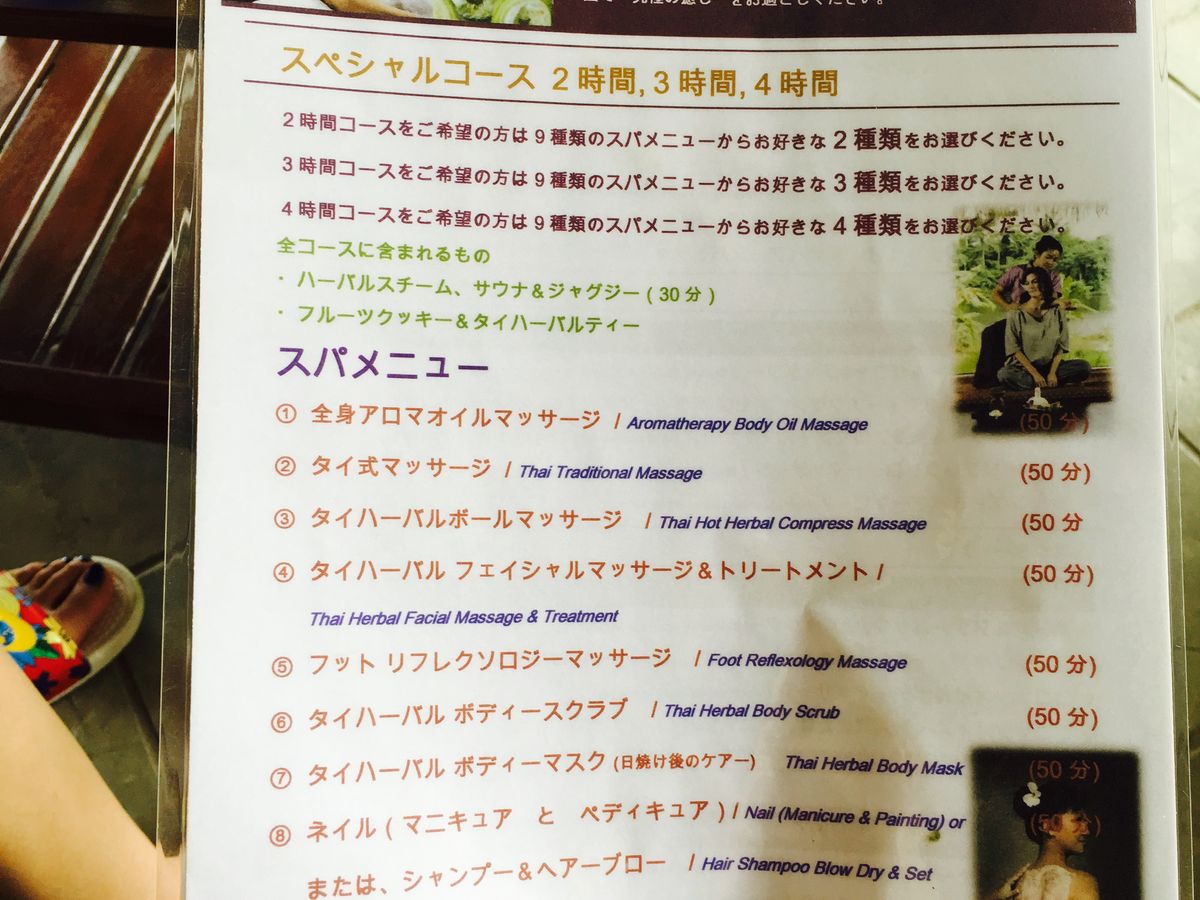 をお過ごしください。
スペシャルコース 2時間, 3時間, 4時間
2時間コースをご希望の方は9種類のスパメニューからお好きな2種類をお選びください。
3時間コースをご希望の方は9種類のスパメニューからお好きな3種類をお選びください。
4時間コースをご希望の方は9種類のスパメニューからお好きな4種類をお選びください。
全コースに含まれるもの
・ ハーバルスチーム、サウナ&ジャグジー(30分)
・ フルーツクッキー&タイハーバルティー
スパメニュー
① 全身アロマオイルマッサージ / Aromatherapy Body Oil Massage (50分)
② タイ式マッサージ / Thai Traditional Massage (50分)
③ タイハーバルボールマッサージ / Thai Hot Herbal Compress Massage (50分
④ タイハーバル フェイシャルマッサージ&トリートメント / (50分)
Thai Herbal Facial Massage & Treatment
⑤ フット リフレクソロジーマッサージ / Foot Reflexology Massage (50分)
⑥ タイハーバル ボディースクラブ / Thai Herbal Body Scrub (50分)
⑦ タイハーバル ボディーマスク (日焼け後のケアー) Thai Herbal Body Mask (50分)
⑧ ネイル(マニキュア と ペディキュア) / Nail (Manicure & Painting) or (50分)
または、シャンプー&ヘアーブロー / Hair Shampoo Blow Dry & Set